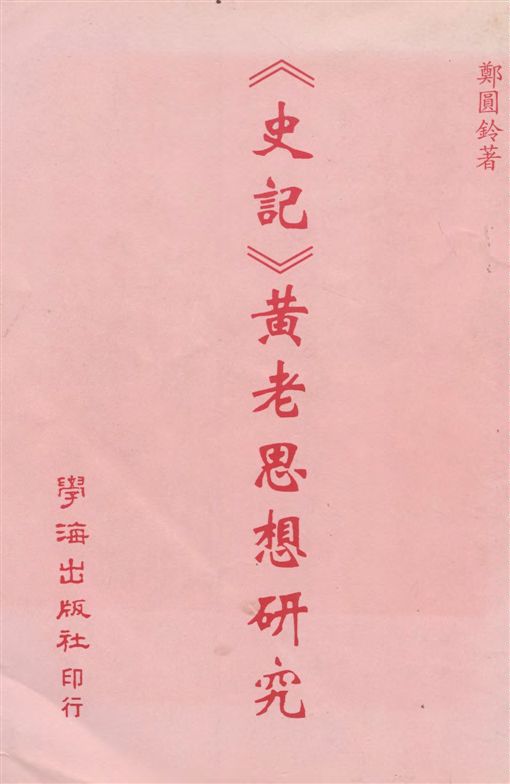 鄭圓鈴著
《史記》黃老思想研究
學海出版社印行